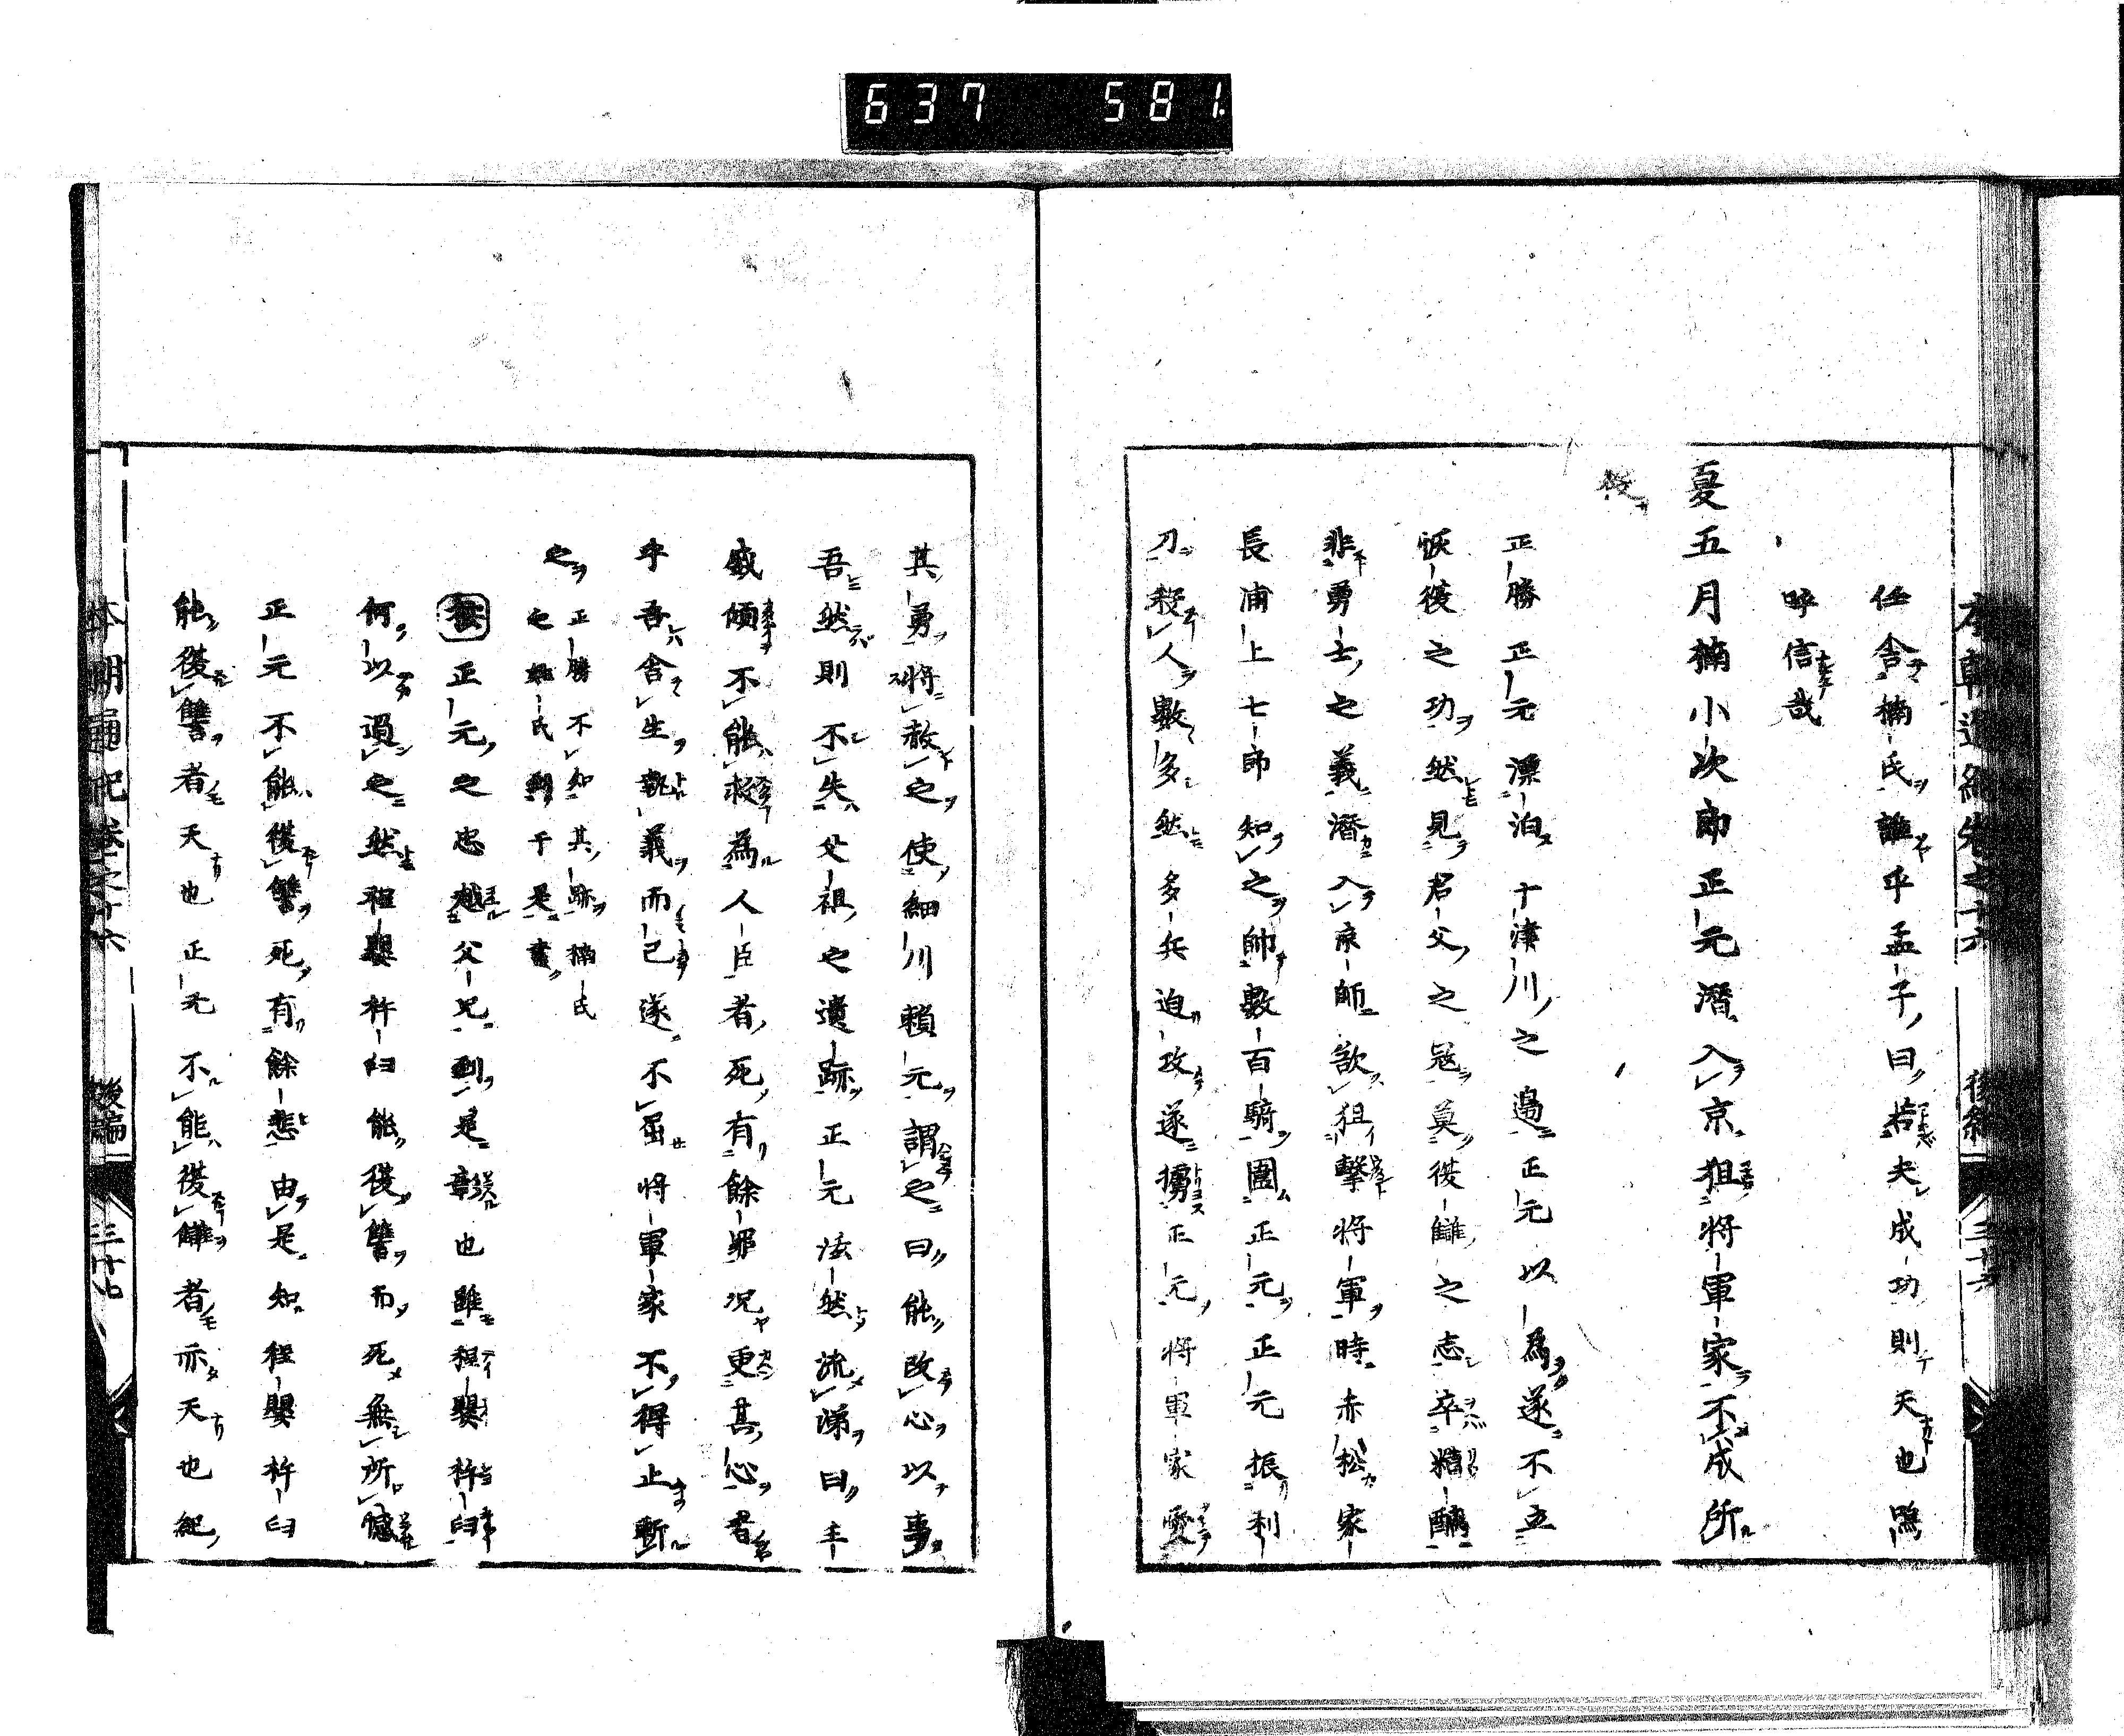 637 581
任舎楠氏誰乎孟子曰若夫成功則天也嗚
呼信哉
夏五月楠小次郎正元潜入京狙将軍家不成所
殺
正勝正元漂泊十津川之邉正元以為遂不立
恢復之功然見君父之冦莫復讎之志卒糟
非勇士之義潜入京師欲狙撃将軍時赤松家
長浦上七郎知之帥數百騎圍正元正元振利
刀殺人數多然多兵迫攻遂擄正元将軍家愛
其勇将赦之使細川頼元謂之曰能改心以事
吾然則不失父祖之遺跡正元法然流涕曰主
威傾不能救為人臣者死有餘罪况更其心者
乎吾舎生執義而已遂不屈将軍家不得止斬
之正勝不知其跡楠氏
之於是書
正元之忠越父兄到是章也雖程嬰杵臼
何以過之然程嬰杵臼能復讐而死無所憾
正元不能復讐死有餘悲由是知程嬰杵臼
能復讐者天也正元不能復讎者亦天也紀
本朝通紀巻之十六 後編 三十七